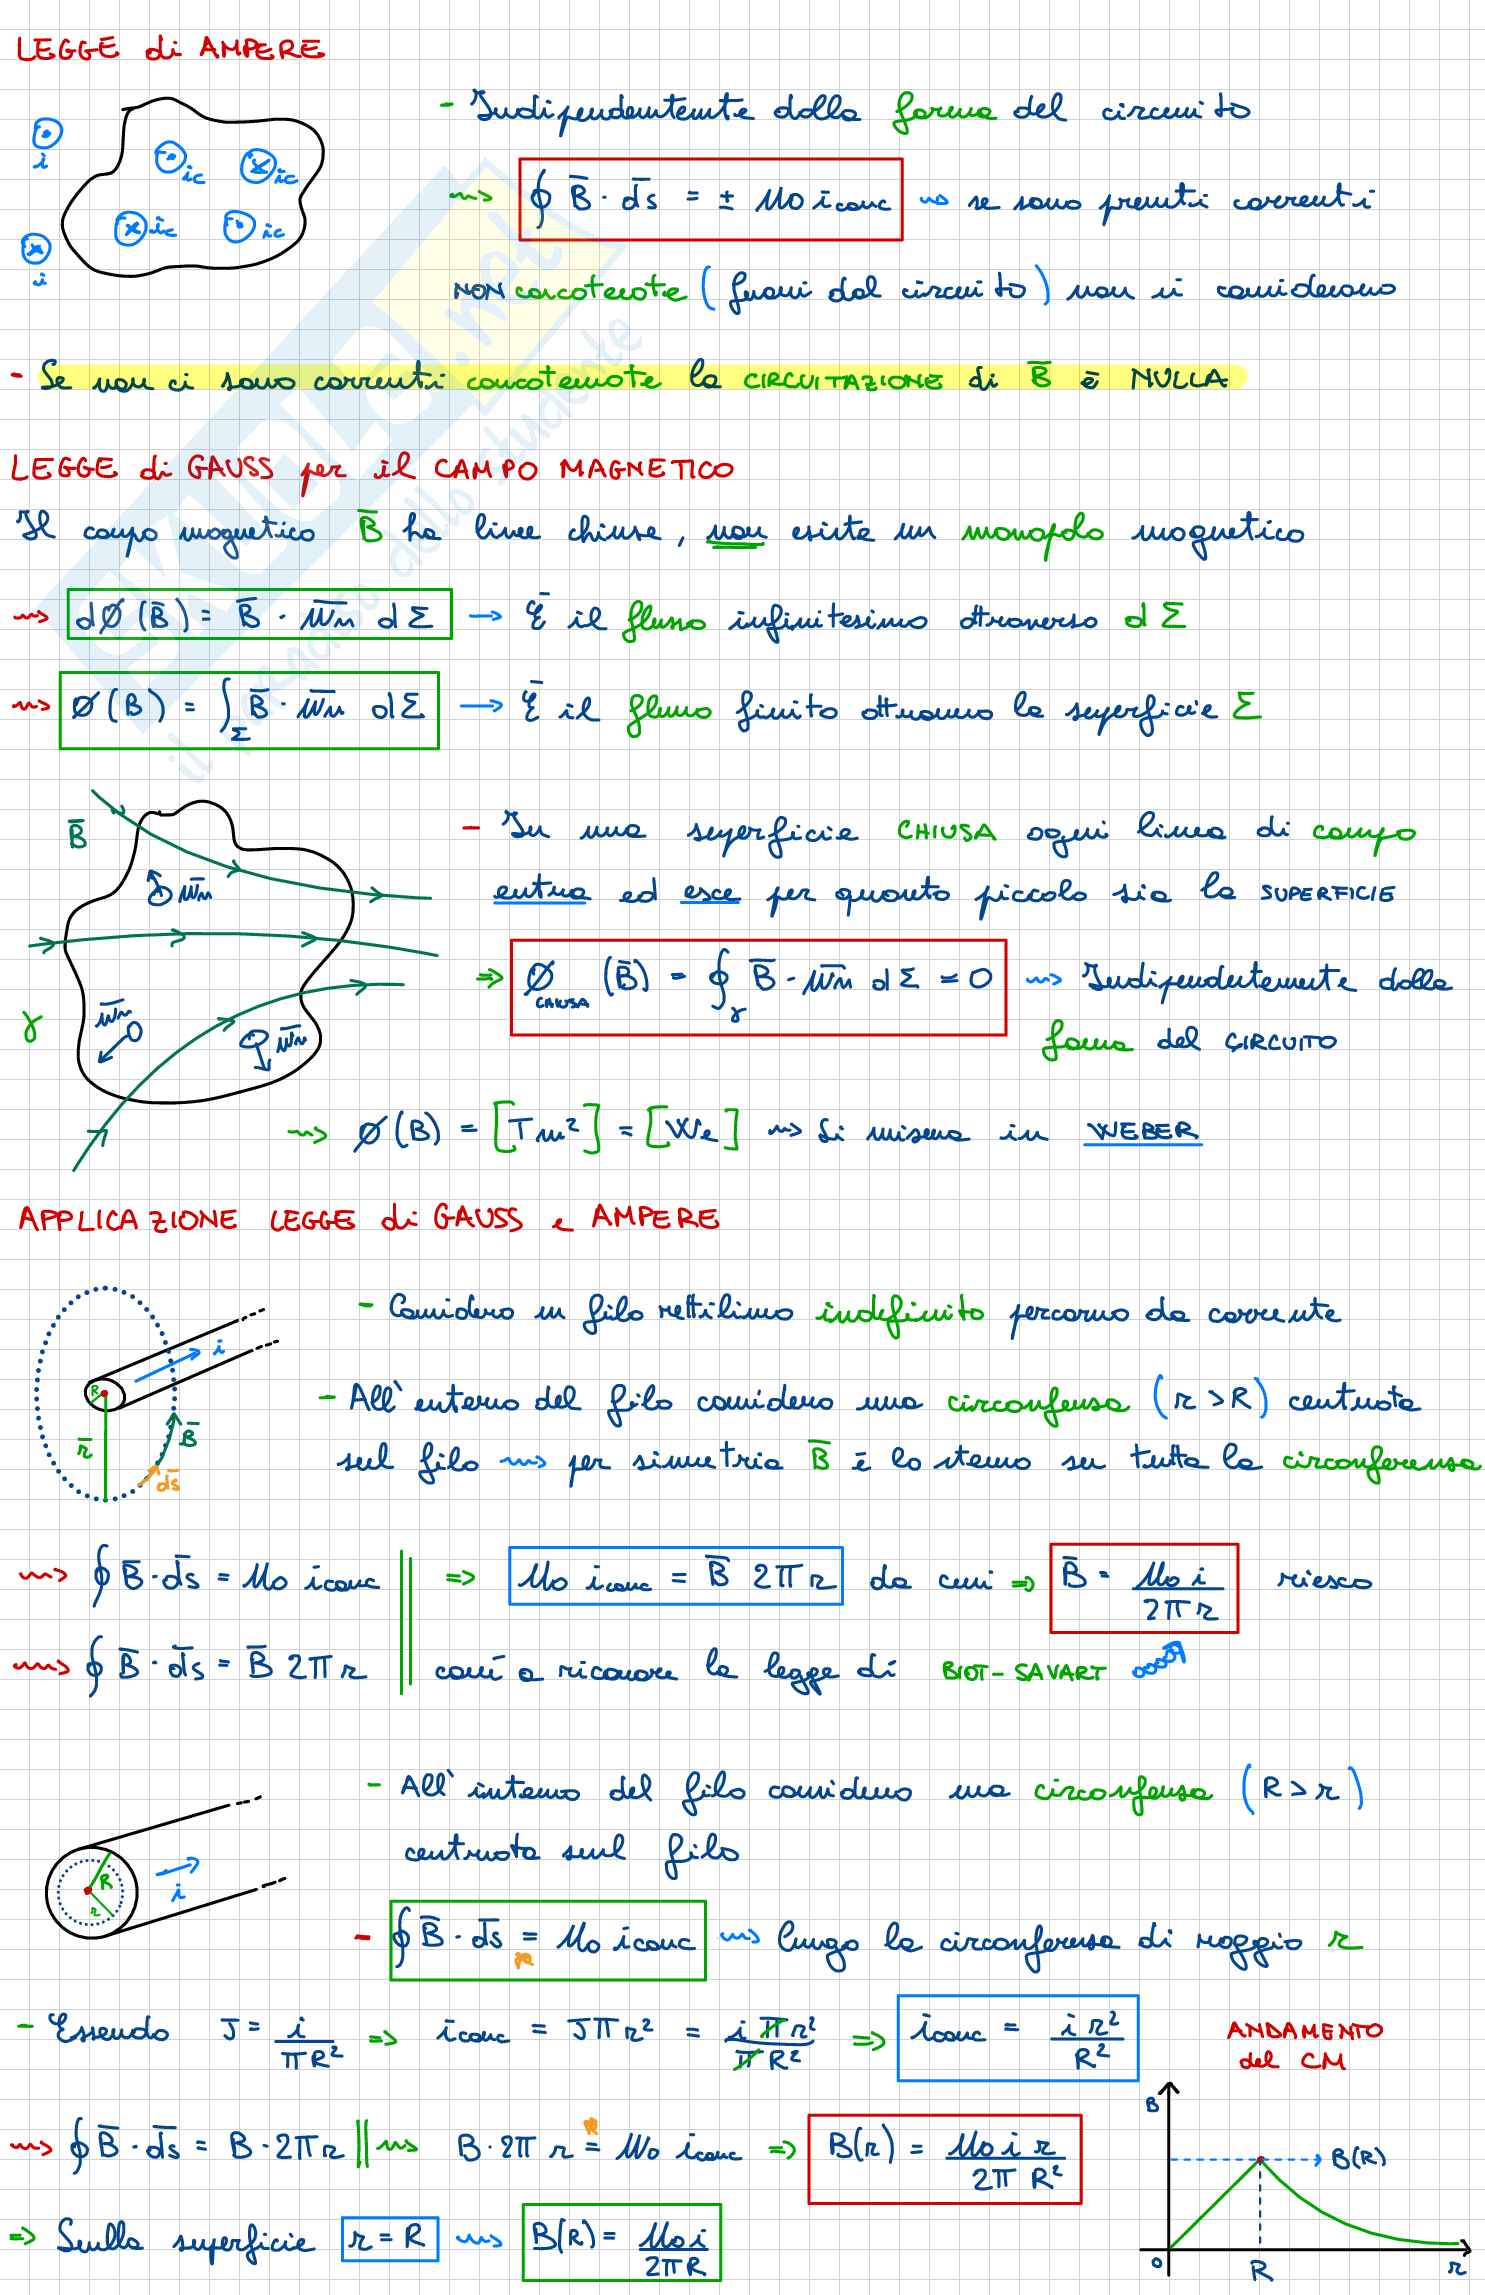 LEGGE di AMPERE
i
ic
ic
ic
ic
i
- Indipendentemente dalla forma del circuito
⇝ ∮ B̅ · d̅s̅ = ± μ0 i conc ⇝ se sono presenti correnti
NON concatenate (fuori dal circuito) non si considerano
- Se non ci sono correnti concatenate la CIRCUITAZIONE di B̅ è NULLA
SKUOLA.net
il paradiso dello studente
LEGGE di GAUSS per il CAMPO MAGNETICO
Il campo magnetico B̅ ha linee chiuse, non esiste un monopolo magnetico
⇝ dØ (B̅) = B̅ · u̅n̅ dΣ → È il flusso infinitesimo attraverso dΣ
⇝ Ø(B) = ∫Σ B̅ · u̅n̅ dΣ → È il flusso finito attraverso la superficie Σ
B̅
u̅n̅
u̅n̅
γ
u̅n̅
- In una superficie CHIUSA ogni linea di campo
entra ed esce per quanto piccola sia la SUPERFICIE
⇒ Ø CHIUSA (B̅) = ∮γ B̅ · u̅n̅ dΣ = 0 ⇝ Indipendentemente dalla
forma del CIRCUITO
⇝ Ø(B) = [Tm²] = [We] ⇝ Si misura in WEBER
APPLICAZIONE LEGGE di GAUSS e AMPERE
i
R
r̅
B̅
d̅s̅
- Considero un filo rettilineo indefinito percorso da corrente
- All'esterno del filo considero una circonferenza (r > R) centrata
sul filo ⇝ per simmetria B̅ è lo stesso su tutta la circonferenza
⇝ ∮ B̅ · d̅s̅ = μ0 i conc ⇒ μ0 i conc = B̅ 2π r da cui ⇒ B̅ = μ0 i / 2π r riesco
⇝ ∮ B̅ · d̅s̅ = B̅ 2π r così a ricavare la legge di BIOT-SAVART
i
R
r
- All'interno del filo considero una circonferenza (R > r)
centrata sul filo
- ∮ B̅ · d̅s̅ = μ0 i conc ⇝ lungo la circonferenza di raggio r
- Essendo J = i / πR² ⇒ i conc = Jπr² = i π r² / π R² ⇒ i conc = i r² / R²
ANDAMENTO
del CM
⇝ ∮ B̅ · d̅s̅ = B · 2π r ⇝ B · 2π r = μ0 i conc ⇒ B(r) = μ0 i r / 2π R²
⇒ Sulla superficie r = R ⇝ B(R) = μ0 i / 2πR
B
B(R)
0
R
r